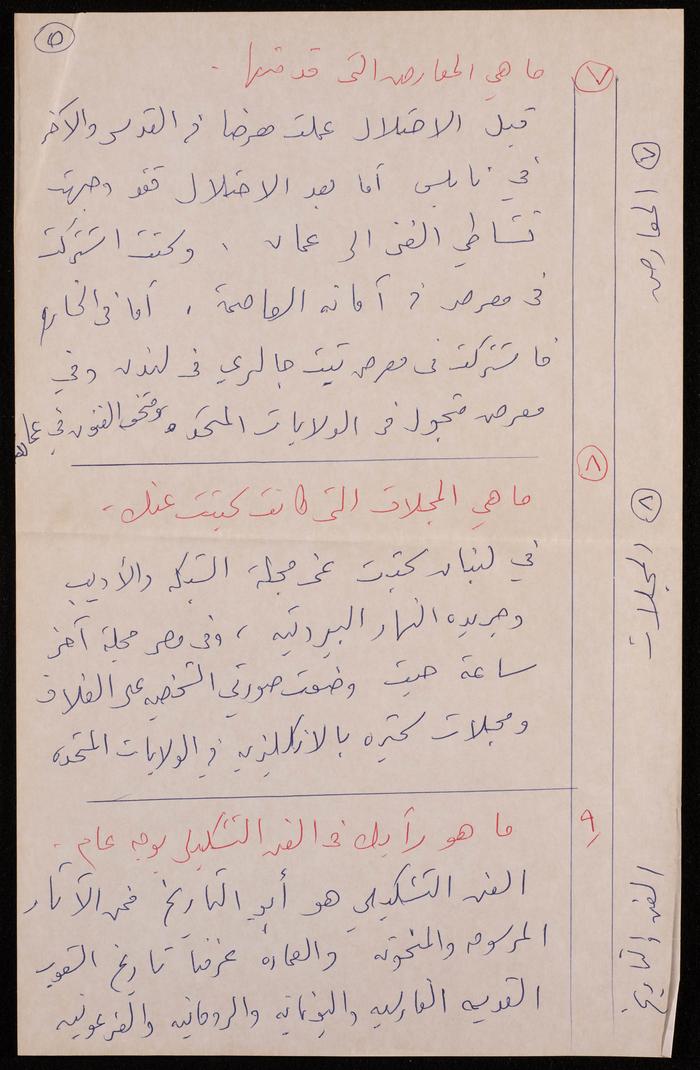 ٥
٧ ما هي المعارض التي قدمتها .
قبل الاحتلال عملت معرضا في القدس والآخر
في نابلس أما بعد الاحتلال فقد وجهت
نشاطي الفني الى عمان ، وكنت اشتركت
في معرض في أمانه العاصمة ، أما في الخارج
فاشتركت في معرض تيت جالري في لندن وفي
معرض متجول في الولايات المتحده ومتحف الفنون في عمان
٧ المعارض
٨ ما هي المجلات التي كانت كتبت عنك .
في لبنان كتبت عني مجلة الشبكه والأديب
وجريده النهار البيروتيه ، وفي مصر مجلة آخر
ساعة حيث وضعت صورتي الشخصيه على الغلاف
ومجلات كثيره بالانكليزيه في الولايات المتحده
٨ المجلات
٩ ما هو رأيك في الفن التشكيلي بوجه عام .
الفن التشكيلي هو أبو التاريخ فمن الآثار
المرسومه والمنحوته والعماره عرفنا تاريخ الشعوب
القديمه الفارسيه واليونانيه والرومانيه والفرعونيه
الفن والتاريخ